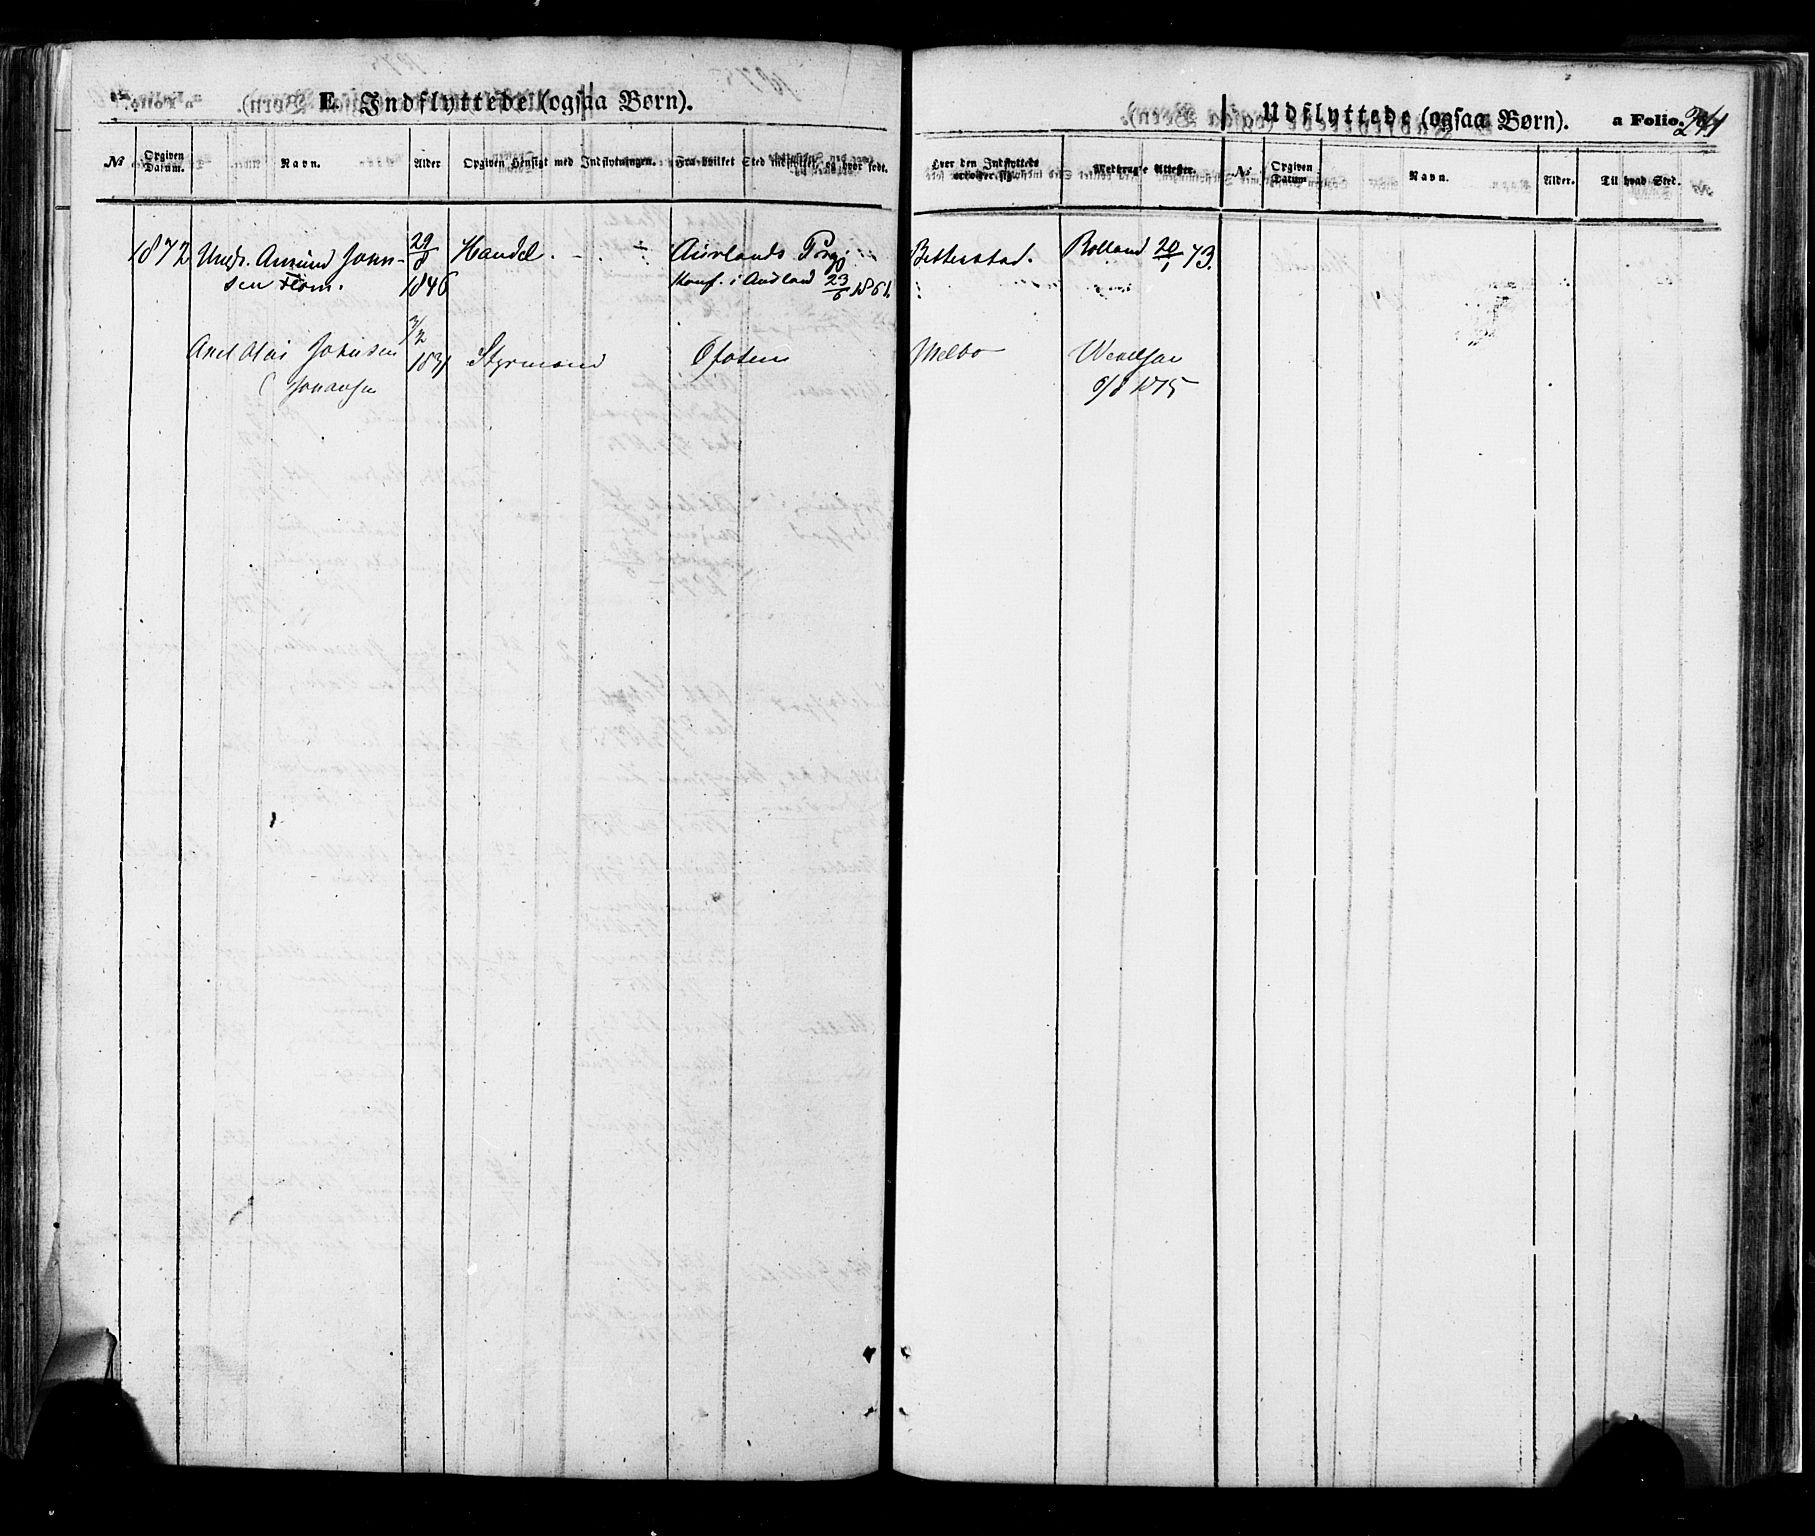 E. Indflyttede (ogsaa Børn).
Udflyttede (ogsaa Børn). a Folio. 244
No Opgiven Datum. Navn. Alder Opgiven Hensigt med Indflytningen. Fra hvilket Sted indflyttet, og hvor født.
Hvor den Indflyttede opholder sig. Medbragte Attester. No Opgiven Datum Navn. Alder. Til hvad Sted.
1872 Ungk. Amund John- 29/8 Handel. Aurlands Prgj. Bitterstad. Rolland 20/1 73.
sen Flom. 1846 Konf. i Aurland 23/6 1861.
3/2
Axel Olai Johnsen 1831 Styrmand Ofoten Melbo
Johansen 6/8 1875